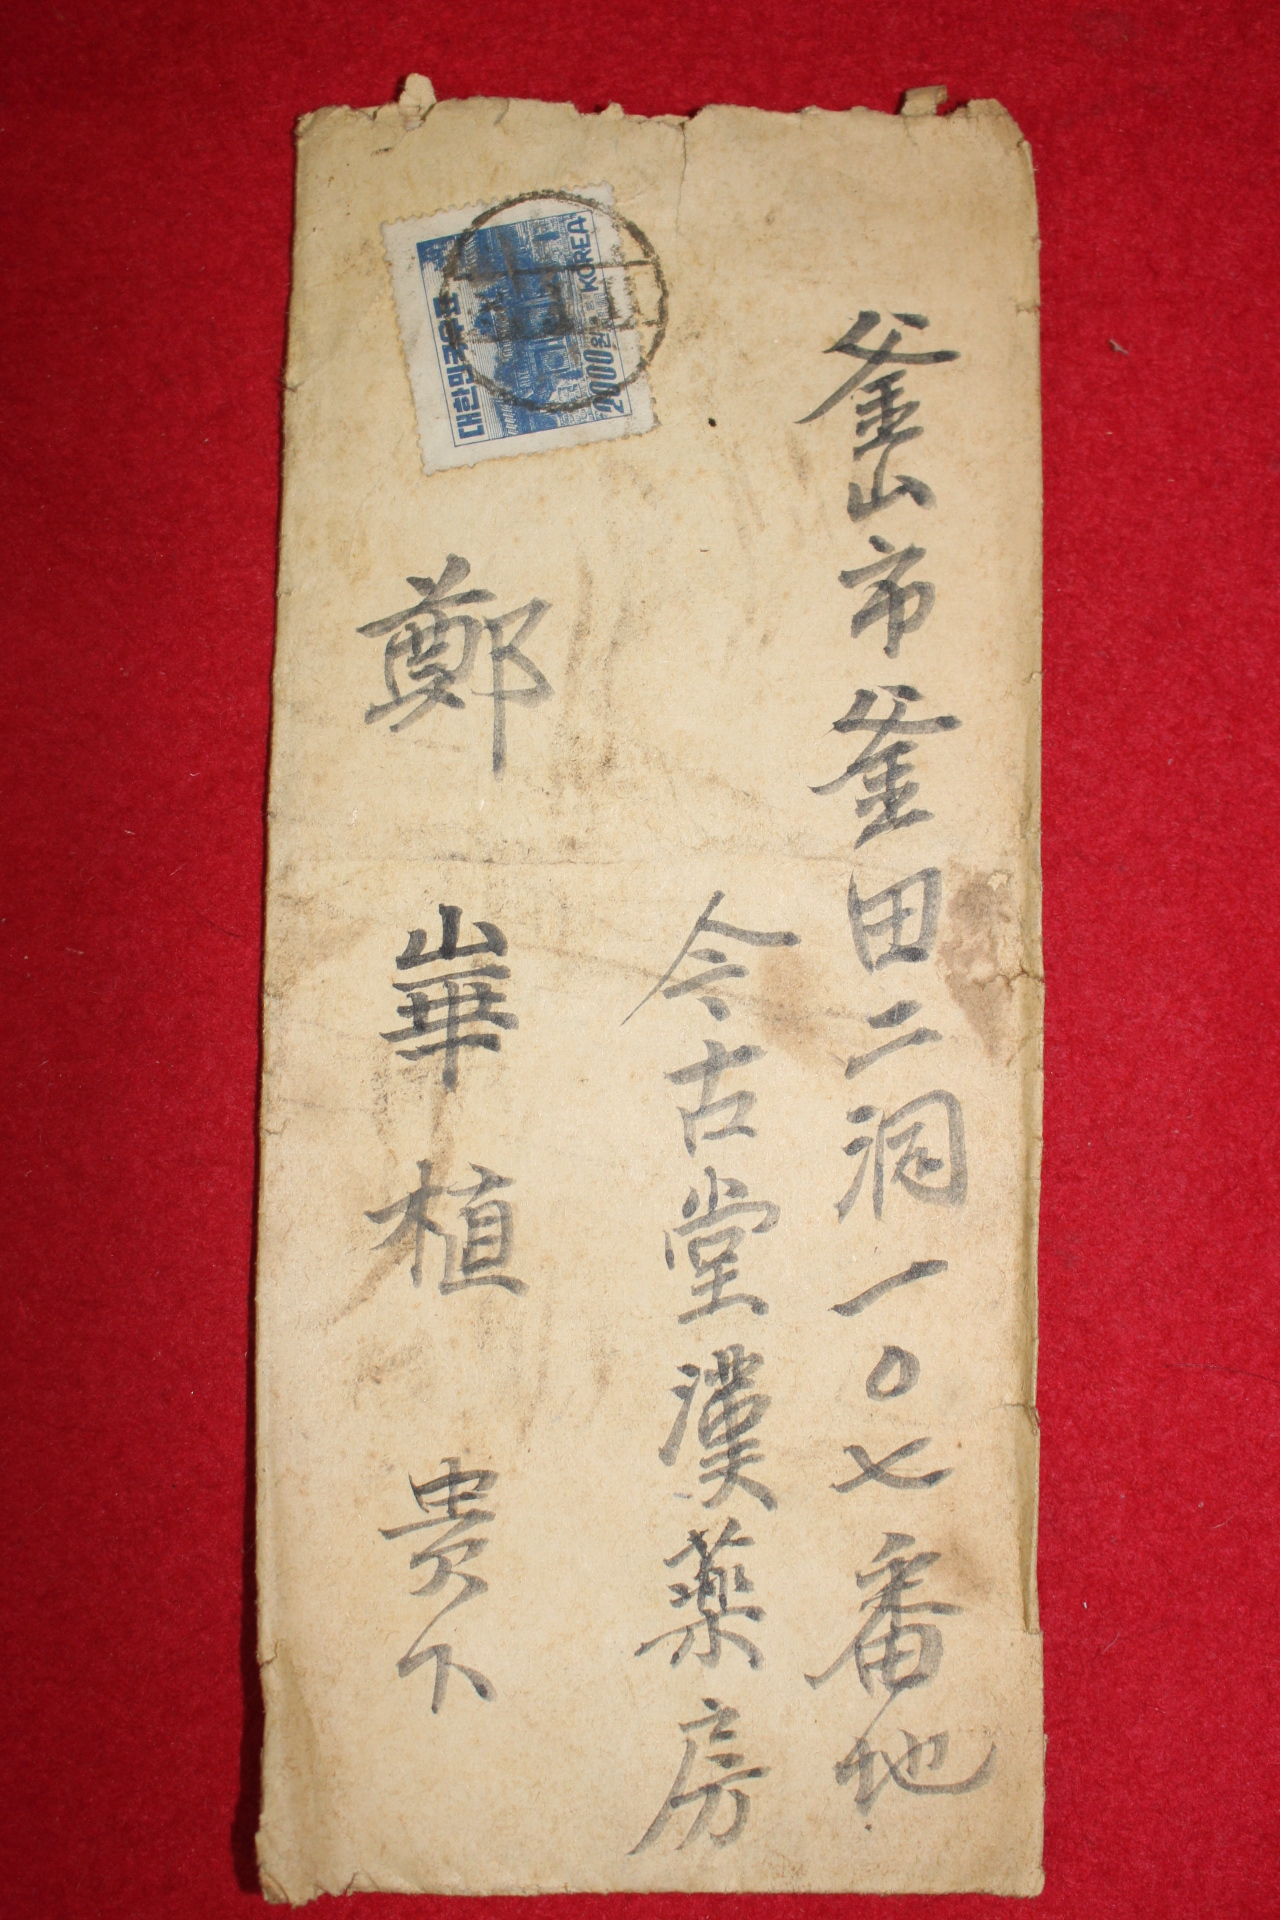 釜山市釜田二洞一〇七番地
今古堂漢薬房
鄭崋植貴下
대한민국우표
KOREA
2000원